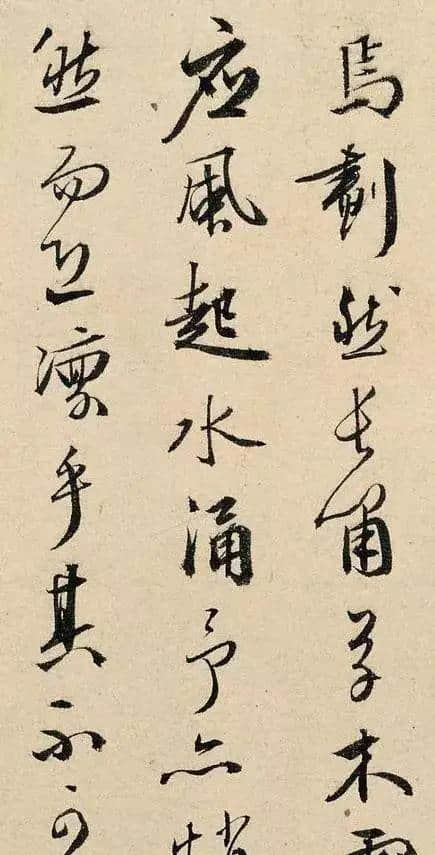 焉劃然長嘯草木震
應風起水涌予亦悄
然而恐凜乎其不可